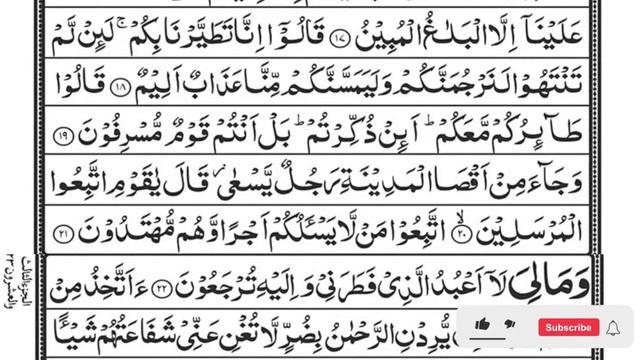 عَلَيْنَاۤ اِلَّا الْبَلٰغُ الْمُبِيْنُ ﴿۱۷﴾ قَالُوْۤا اِنَّا تَطَيَّرْنَا بِكُمْ ۚ لَئِنْ لَّمْ
تَنْتَهُوْا لَنَرْجُمَنَّكُمْ وَلَيَمَسَّنَّكُمْ مِّنَّا عَذَابٌ اَلِيْمٌ ﴿۱۸﴾ قَالُوْا
طَآئِرُكُمْ مَّعَكُمْ ؕ اَئِنْ ذُكِّرْتُمْ ؕ بَلْ اَنْتُمْ قَوْمٌ مُّسْرِفُوْنَ ﴿۱۹﴾
وَجَآءَ مِنْ اَقْصَا الْمَدِيْنَةِ رَجُلٌ يَّسْعٰى قَالَ يٰقَوْمِ اتَّبِعُوا
الْمُرْسَلِيْنَ ﴿۲۰﴾ اتَّبِعُوْا مَنْ لَّا يَسْئَلُكُمْ اَجْرًا وَّهُمْ مُّهْتَدُوْنَ ﴿۲۱﴾
وَمَالِيَ لَاۤ اَعْبُدُ الَّذِيْ فَطَرَنِيْ وَاِلَيْهِ تُرْجَعُوْنَ ﴿۲۲﴾ ءَاَتَّخِذُ مِنْ
يُّرِدْنِ الرَّحْمٰنُ بِضُرٍّ لَّا تُغْنِ عَنِّيْ شَفَاعَتُهُمْ شَيْـًٔا
الجزء الثالث
والعشرون ۲۳
Subscribe